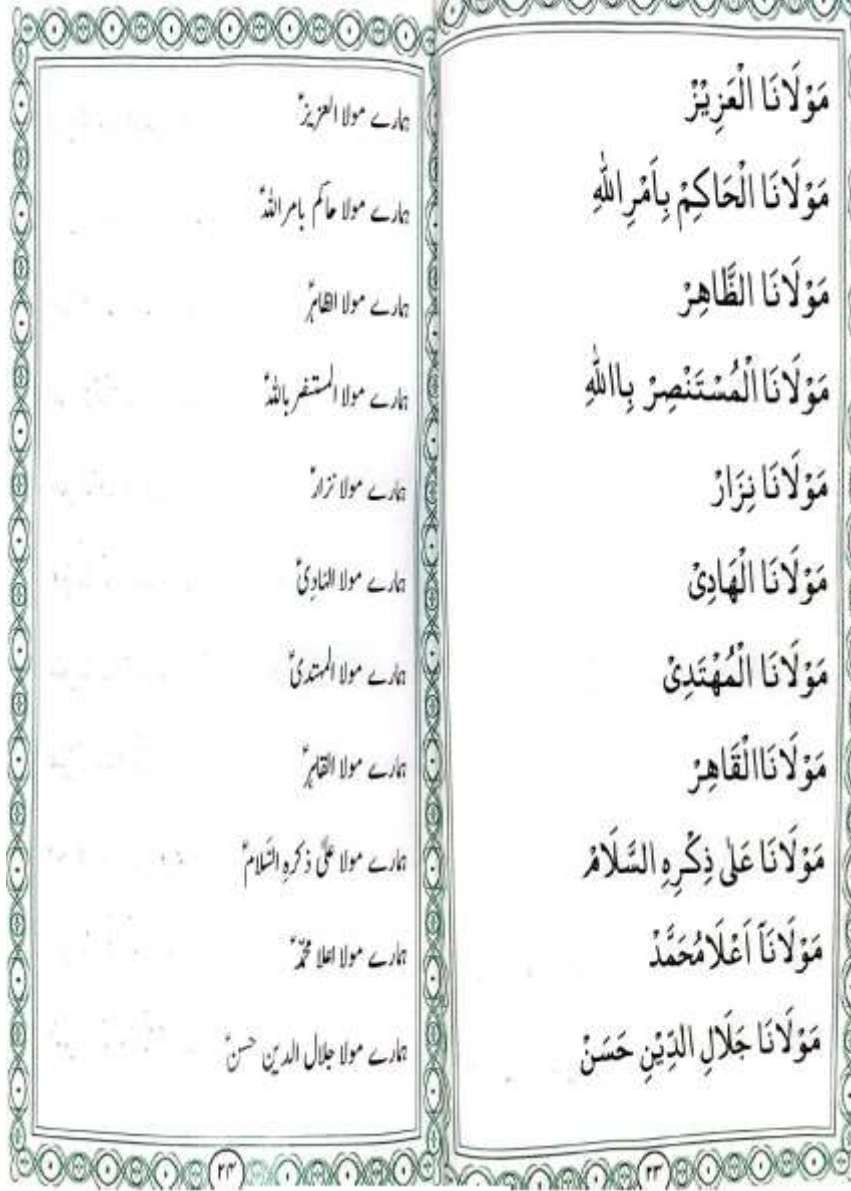 مَوْلَانَا الْعَزِيْزْ
مَوْلَانَا الْحَاكِمْ بِاَمْرِ اللّٰهِ
مَوْلَانَا الظَّاهِرْ
مَوْلَانَا الْمُسْتَنْصِرْ بِااللّٰهِ
مَوْلَانَا نِزَارْ
مَوْلَانَا الْهَادِىْ
مَوْلَانَا الْمُهْتَدِىْ
مَوْلَانَاالْقَاهِرْ
مَوْلَانَا عَلٰى ذِكْرِهِ السَّلَامْ
مَوْلَانَآ اَعْلَامُحَمَّدْ
مَوْلَانَا جَلَالِ الدِّيْنِ حَسَنْ
۲۳
ہمارے مولا العزیزؑ
ہمارے مولا حاکم بامر اللہؑ
ہمارے مولا الظاہرؑ
ہمارے مولا المستنصر باللہؑ
ہمارے مولا نزارؑ
ہمارے مولا الہادِیؑ
ہمارے مولا المہتدیؑ
ہمارے مولا القاہرؑ
ہمارے مولا علیٰ ذکرہِ السّلامؑ
ہمارے مولا اعلا محمّدؑ
ہمارے مولا جلال الدین حسنؑ
۲۴